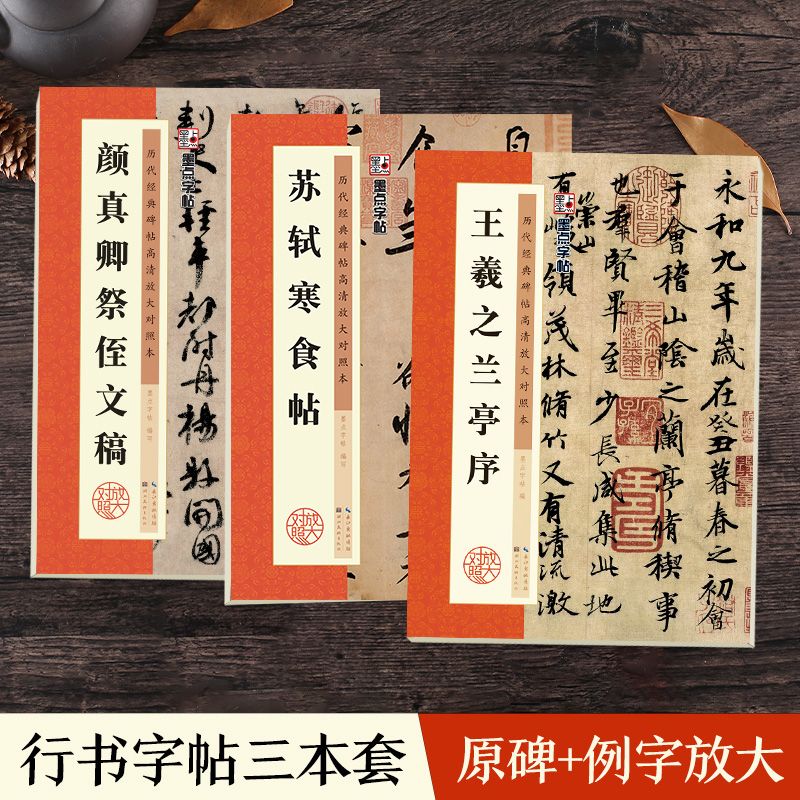 颜真卿祭侄文稿
历代经典碑帖高清放大对照本
墨点字帖 编写
放大对照
墨点
墨点字帖
刺史上輕車都尉丹楊縣開國
苏轼寒食帖
历代经典碑帖高清放大对照本
墨点字帖 编写
放大对照
墨点
墨点字帖
王羲之兰亭序
历代经典碑帖高清放大对照本
墨点字帖 编
放大对照
墨点
墨点字帖
永和九年歲在癸丑暮春之初會
于會稽山陰之蘭亭脩稧事
也羣賢畢至少長咸集此地
有崇山領茂林脩竹又有清流激
行书字帖三本套
原碑+例字放大